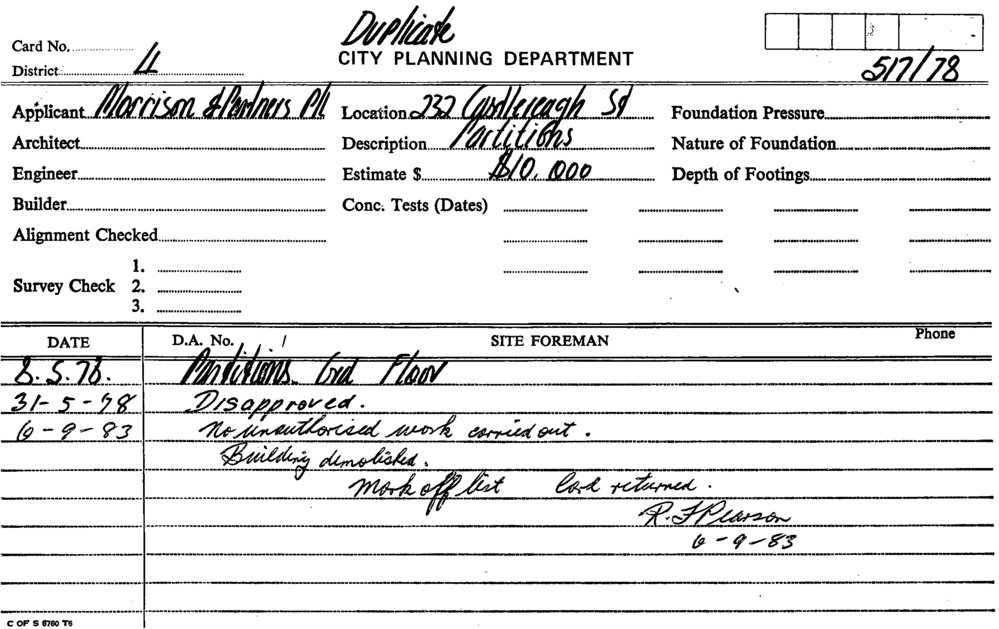 Duplicate
CITY PLANNING DEPARTMENT
Card No.
District 4
517/78
Applicant Morrison & Partners P/L Location 232 Castlereagh St Foundation Pressure
Architect Description Partitions Nature of Foundation
Engineer Estimate $ $10,000 Depth of Footings
Builder Conc. Tests (Dates)
Alignment Checked
1.
Survey Check 2.
3.
DATE D.A. No. / SITE FOREMAN Phone
8.5.78. Partitions Grd Floor
31-5-78 Disapproved.
6-9-83 No unauthorised work carried out.
Building demolished.
Mark off list Card returned.
R. F Pearson
6-9-83
C OF S 6760 T6